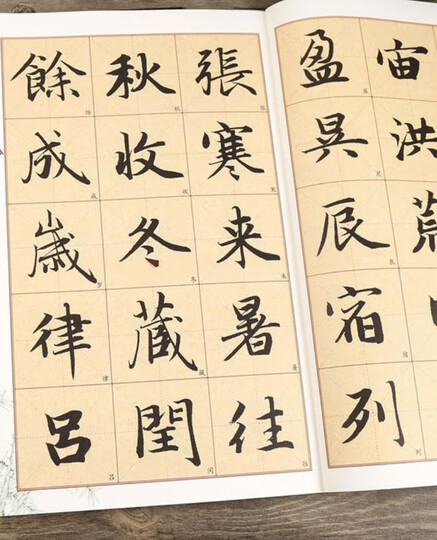 宙洪荒
盈昃辰宿列
張寒来暑往
秋收冬藏閏
餘成歲律呂